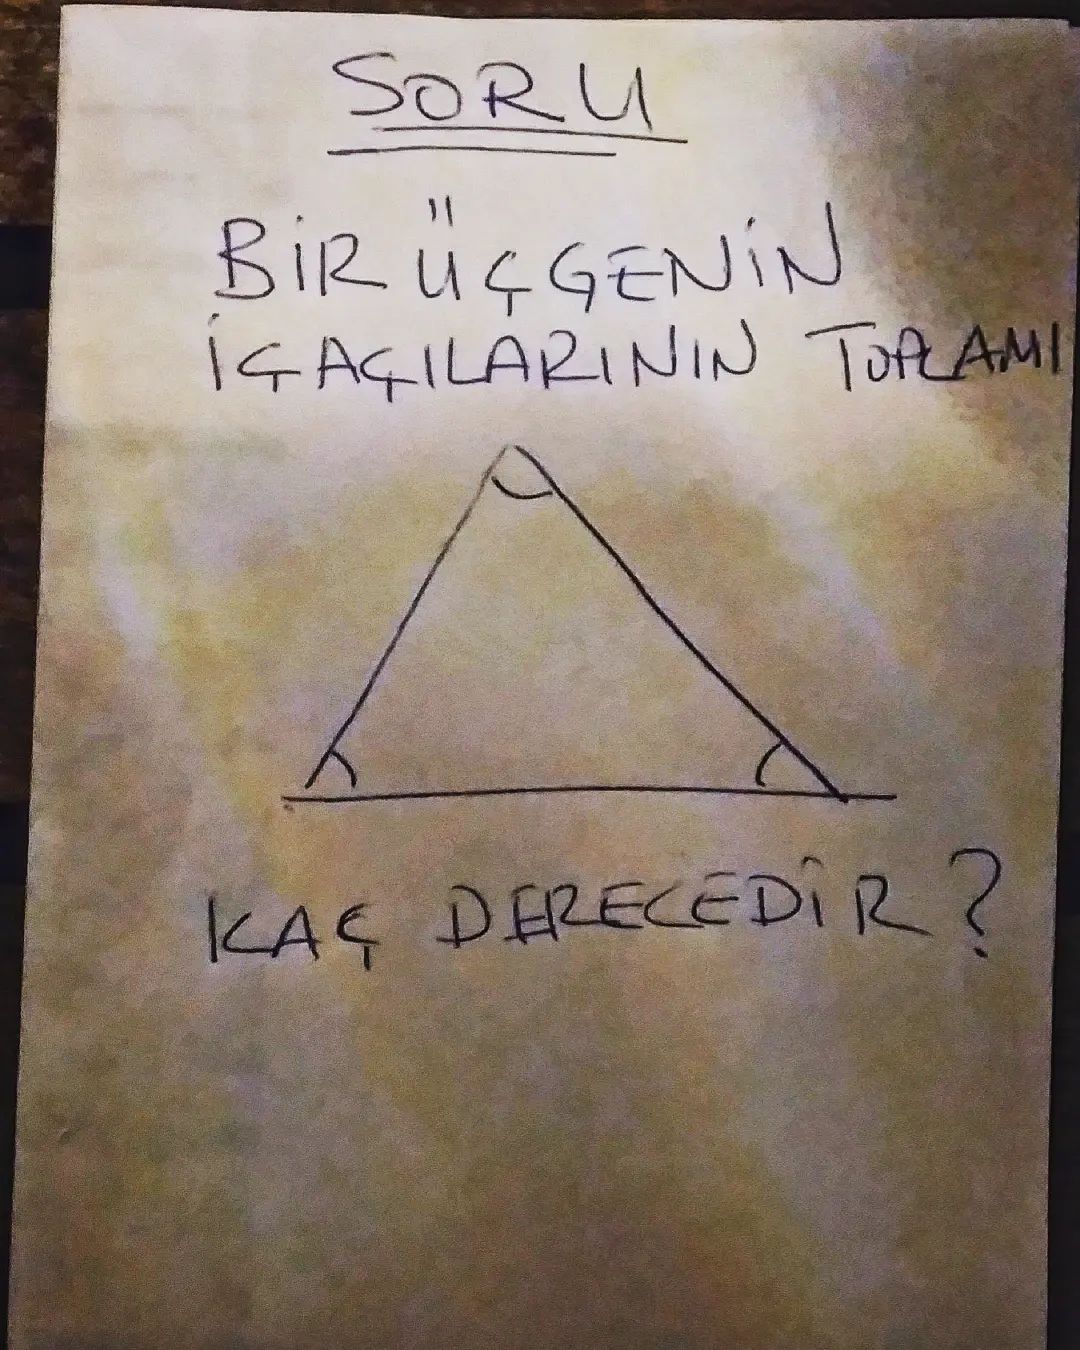 SORU
BİR ÜÇGENİN
İÇ AÇILARININ TOPLAMI
KAÇ DERECEDİR?